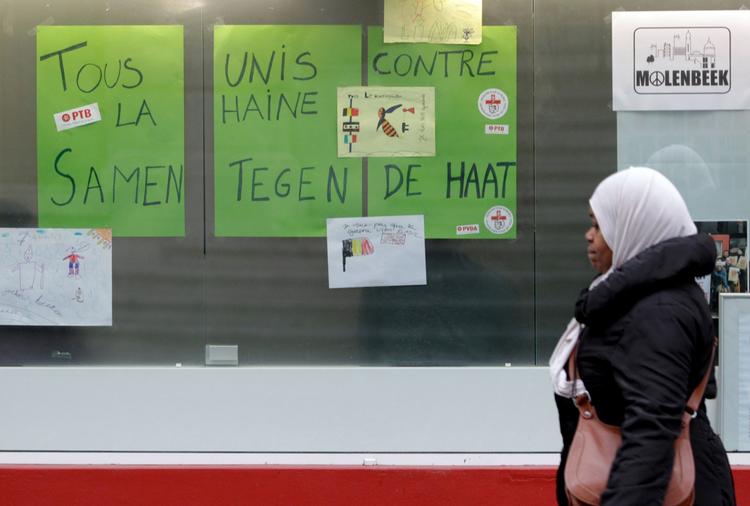 TOUS UNIS CONTRE
LA HAINE
PTB
SAMEN TEGEN DE HAAT
PTB
PVDA
MOLENBEEK